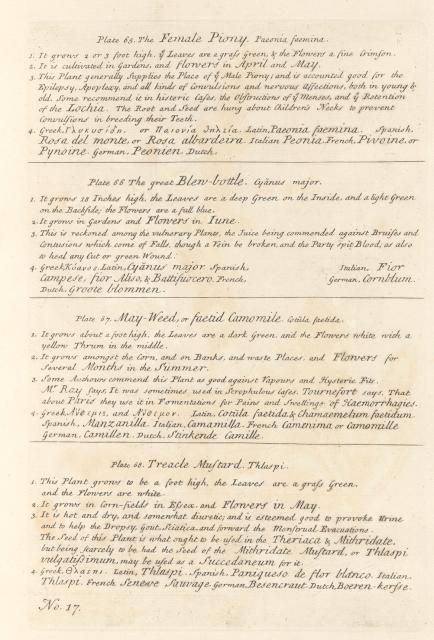 Plate 65. The Female Piony. Paeonia faemina.
1. It grows 2 or 3 foot high, ye Leaves are a grass Green, & the Flowers a fine Crimson.
2. It is cultivated in Gardens, and flowers in April and May.
3. This Plant generally Supplies the Place of ye Male Piony; and is accounted good for the
Epilepsy, Apoplexy, and all kinds of Convulsions and nervous Affections, both in young &
old. Some recommend it in histeric Cases, the Obstructions of ye Menses, and ye Retention
of the Lochia. The Root and Seed are hung about Children's Necks to prevent
Convulsions in breeding their Teeth.
4. Greek, Γλυκυσίδη, or Παιονία Θηλεία. Latin, Paeonia faemina. Spanish.
Rosa del monte, or Rosa albardeira. Italian Peonia. French, Pivoine, or
Pynoine. German, Peonien. Dutch.
Plate 66 The great Blew-bottle. Cyanus major.
1. It grows 18 Inches high, the Leaves are a deep Green on the Inside, and a light Green
on the Backside; the Flowers are a full blue.
2. It grows in Gardens and Flowers in June.
3. This is reckoned among the vulnerary Plants, the Juice being commended against Bruises and
Contusions which come of Falls, though a Vein be broken, and the Party spit Blood; as also
to heal any Cut or green Wound.
4. Greek, Κύανος. Latin, Cyanus major. Spanish, Italian, Fior
Campese, fior Aliso, & Battisuocero. French, German, Cornblum.
Dutch, Groote blommen.
Plate 67. May-Weed, or faetid Camomile. Cotula faetida.
1. It grows about a foot high, the Leaves are a dark Green, and the Flowers white with a
yellow Thrum in the middle.
2. It grows amongst the Corn, and on Banks, and waste Places, and Flowers for
Several Months in the Summer.
3. Some Authours commend this Plant as good against Vapours and Hysteric Fits.
Mr. Ray says It was sometimes used in Scrophulous Cases. Tournefort says, That
about Paris they use it in Fermentations for Pains and Swellings of Haemorrhagies.
4. Greek, Latin. Cotula faetida & Chamaemelum faetidum.
Spanish, Manzanilla. Italian, Camamilla. French Camenima or Camomille
German, Camillen. Dutch. Stinkende Camille.
Plate 68. Treacle Mustard. Thlaspi.
1. This Plant grows to be a foot high, the Leaves are a grass Green,
and the Flowers are white
2. It grows in Corn-fields in Essex and Flowers in May.
3. It is hot and dry, and somewhat diuretic; and is esteemed good to provoke Urine
and to help the Dropsy, Gout, Sciatica, and forward the Menstrual Evacuations.
The Seed of this Plant is what ought to be used in the Theriaca & Mithridate,
but being scarcely to be had the Seed of the Mithridate Mustard, or Thlaspi
vulgatissimum, may be used as a Succedaneum for it.
4. Greek, Θλάσπι. Latin, Thlaspi. Spanish, Paniqueso de flor blanco. Italian.
Thlaspi. French Seneve Sauvage. German, Besencraut. Dutch, Boeren-kersse.
No. 17.